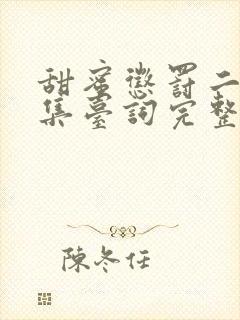 甜蜜懲罰二
集臺詞完整
陳冬任